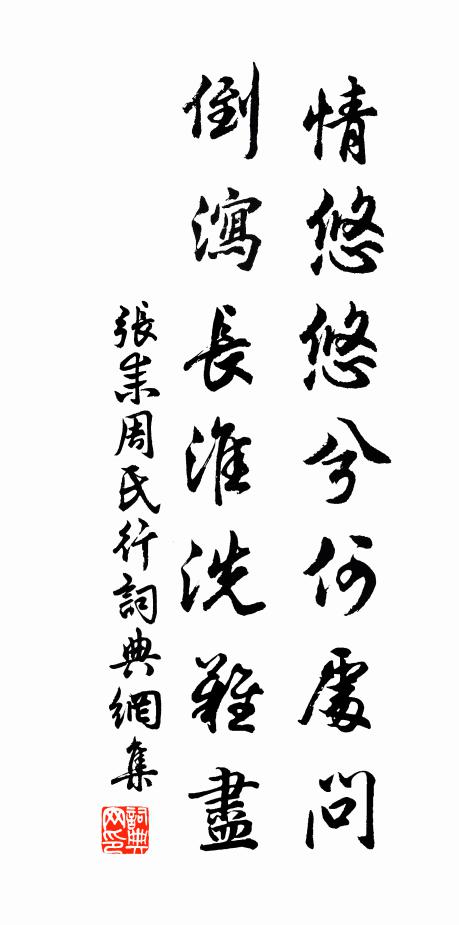 情悠悠兮何處問
倒瀉長淮洗難盡
張耒周氏行詞典網集
詞典網印